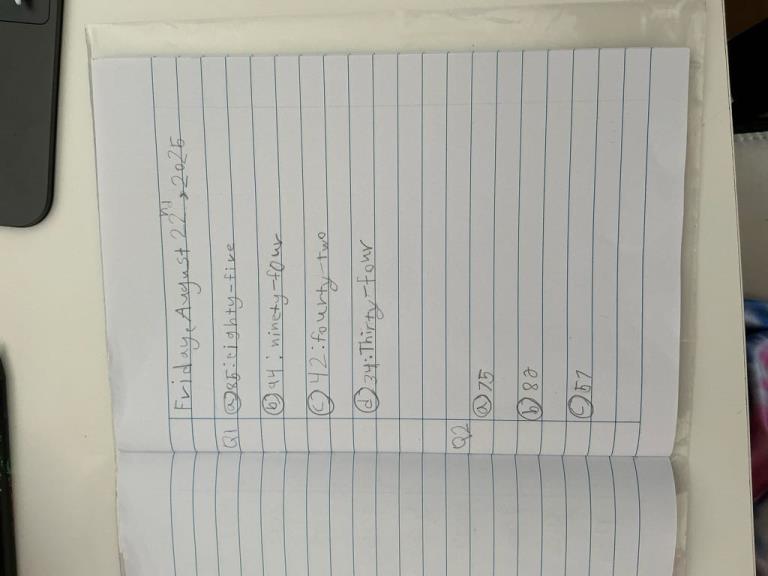 Friday, August 22nd, 2025
Q1 a) 85: eighty-five
b) 94: ninety-four
c) 42: fourty-two
d) 34: Thirty-four
Q2
a) 75
b) 82
c) 57